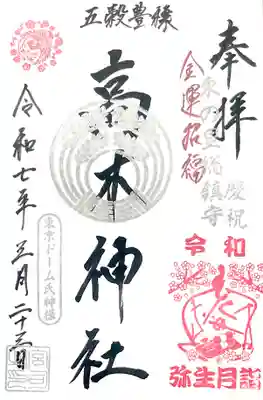 五穀豊穣
奉拝
金運招福
殿祝
鎮守
高木神社
令和七年三月二十三日
東京ドーム氏神様
令和
弥生月詣